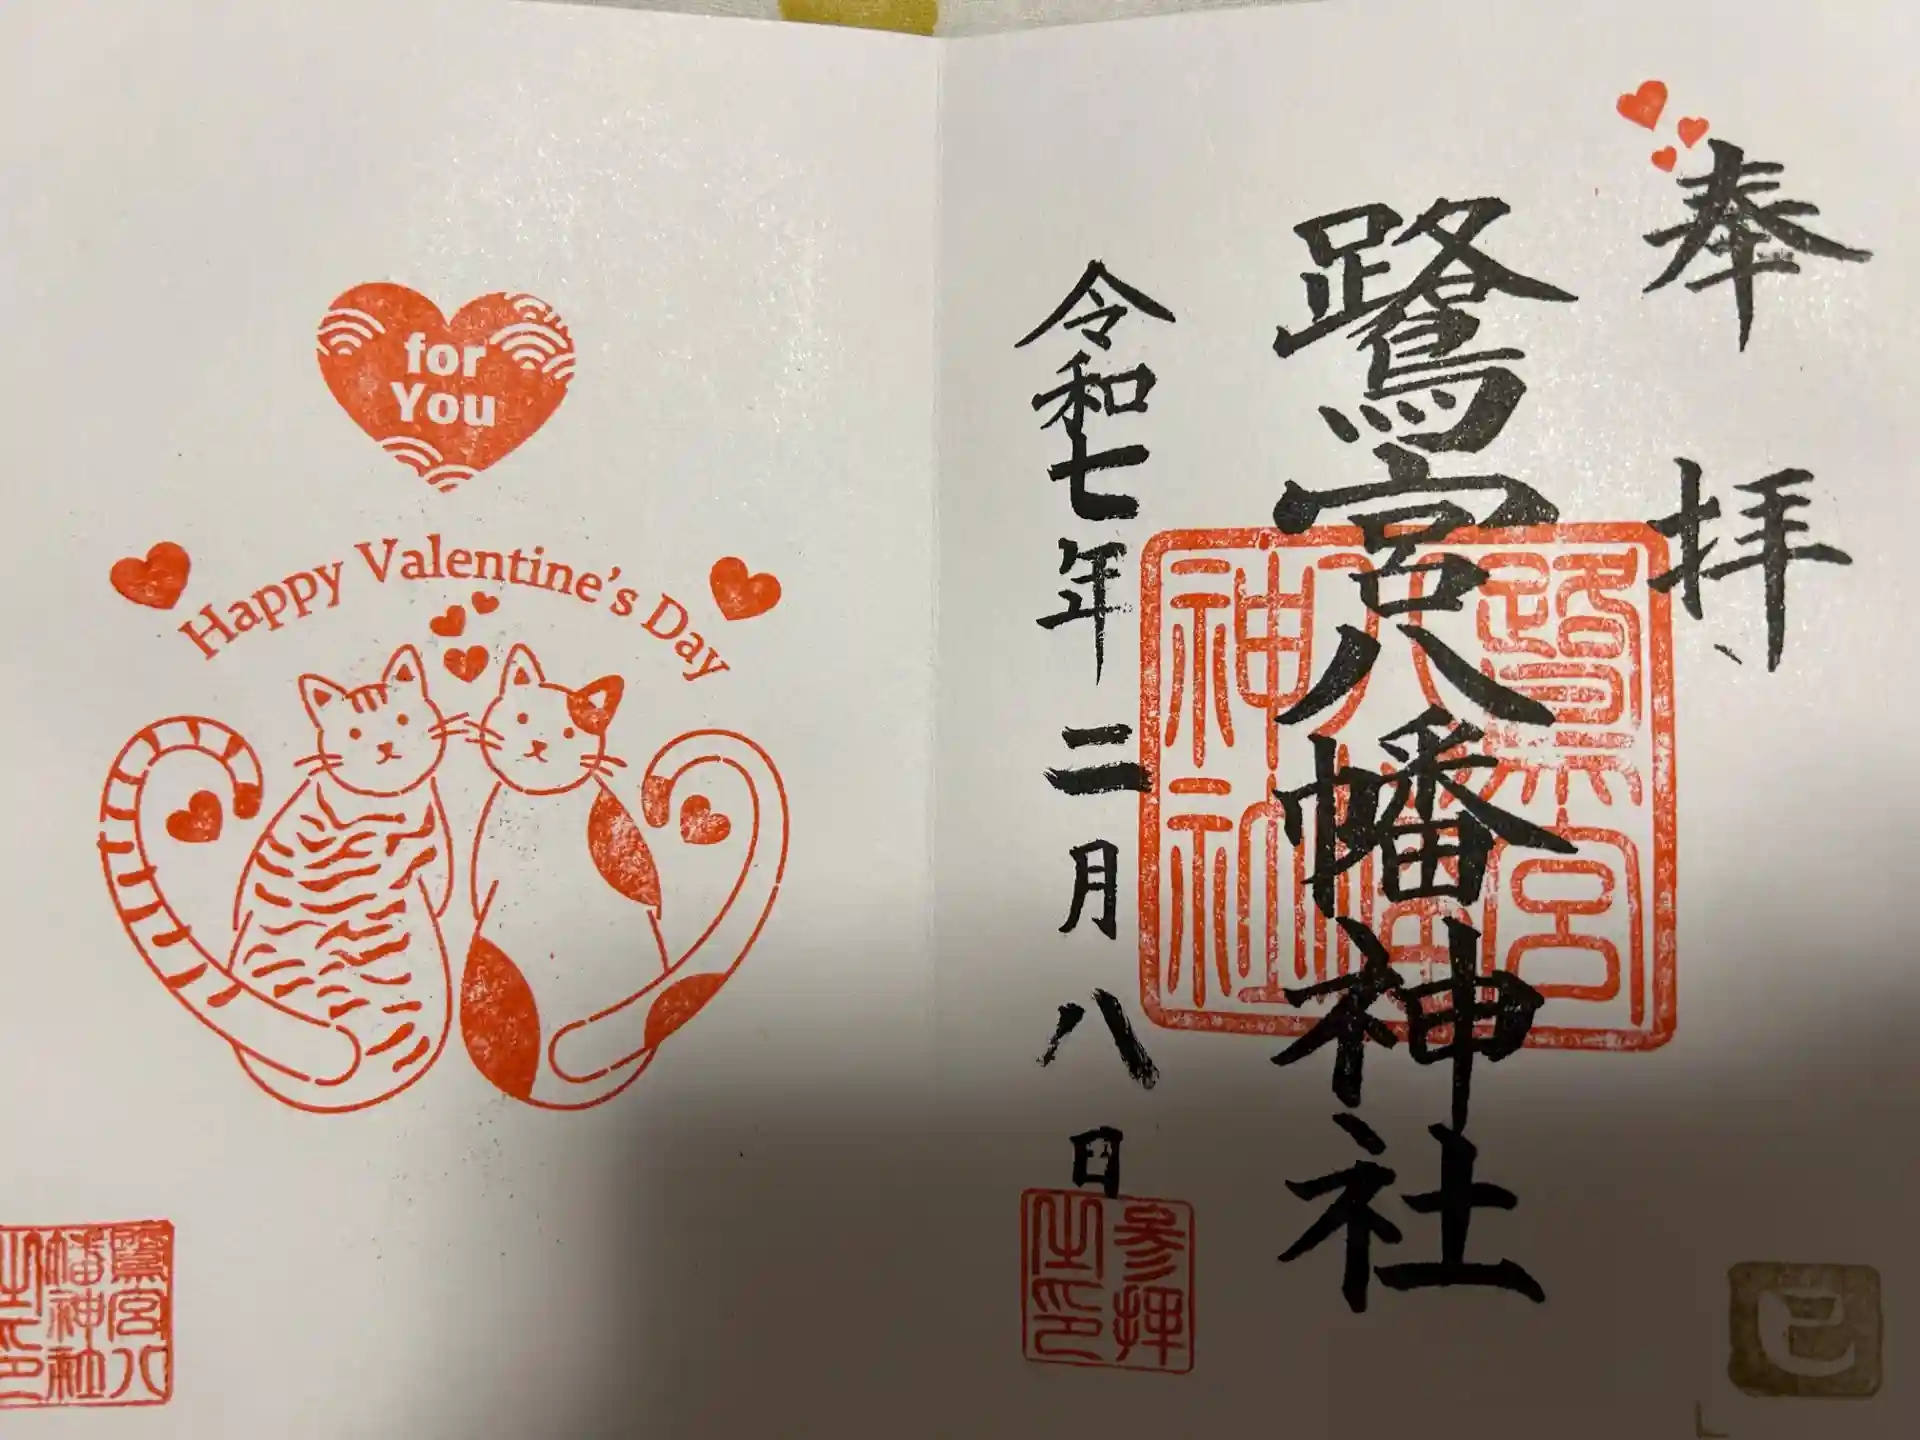 奉拝
鷺宮八幡神社
令和七年二月八日
鷺宮
八幡
神社
参拝
之印
巳
for
You
Happy Valentine's Day
鷺宮八
幡神社
之印